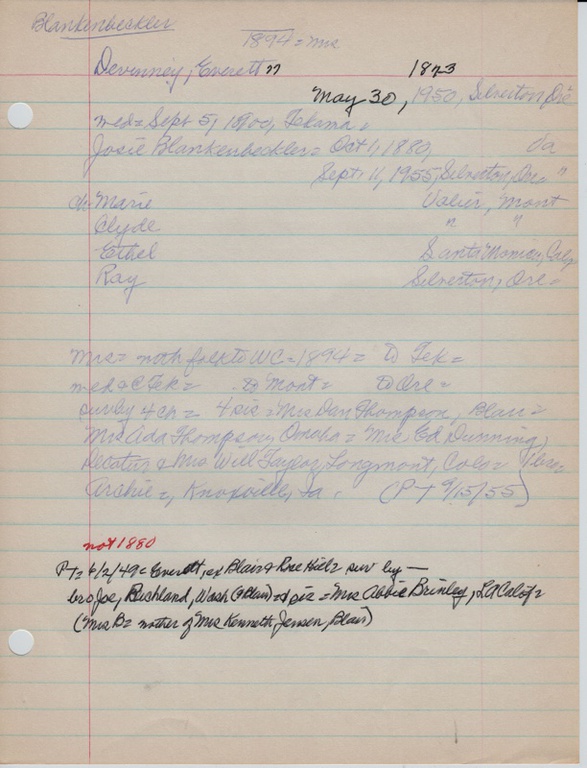 Blankenbeckler
1894 = Mrs
Devinney, Everett " 1873
May 30, 1950, Silverton, Ore
med = Sept 5, 1900, Tekama =
Josie Blankenbeckler = Oct 1, 1880, Ia
Sept 11, 1955, Silverton, Ore = "
ch Marie Valier, Mont
Clyde " "
Ethel Santa Monica, Calif
Ray Silverton, Ore =
Mrs = with folks to WC = 1894 = to Tek =
med @ Tek = to Mont = to Ore =
sur by 4 ch = 4 sis = Mrs Dan Thompson, Blair =
Mrs Ada Thompson, Omaha = Mrs Ed Dunning,
Decatur & Mrs Will Taylor, Longmont, Colo = 1 bro =
Archie =, Knoxville, Ia. (PT 9/15/55)
not 1880
PT = 6/2/49 = Everett, ex Blair & Rose Hill = sur by —
bro Joe, Richland, Wash (& Blair) = & sis = Mrs Abbie Brinley, LA Calif =
(Mrs B = mother of Mrs Kenneth Jensen, Blair)